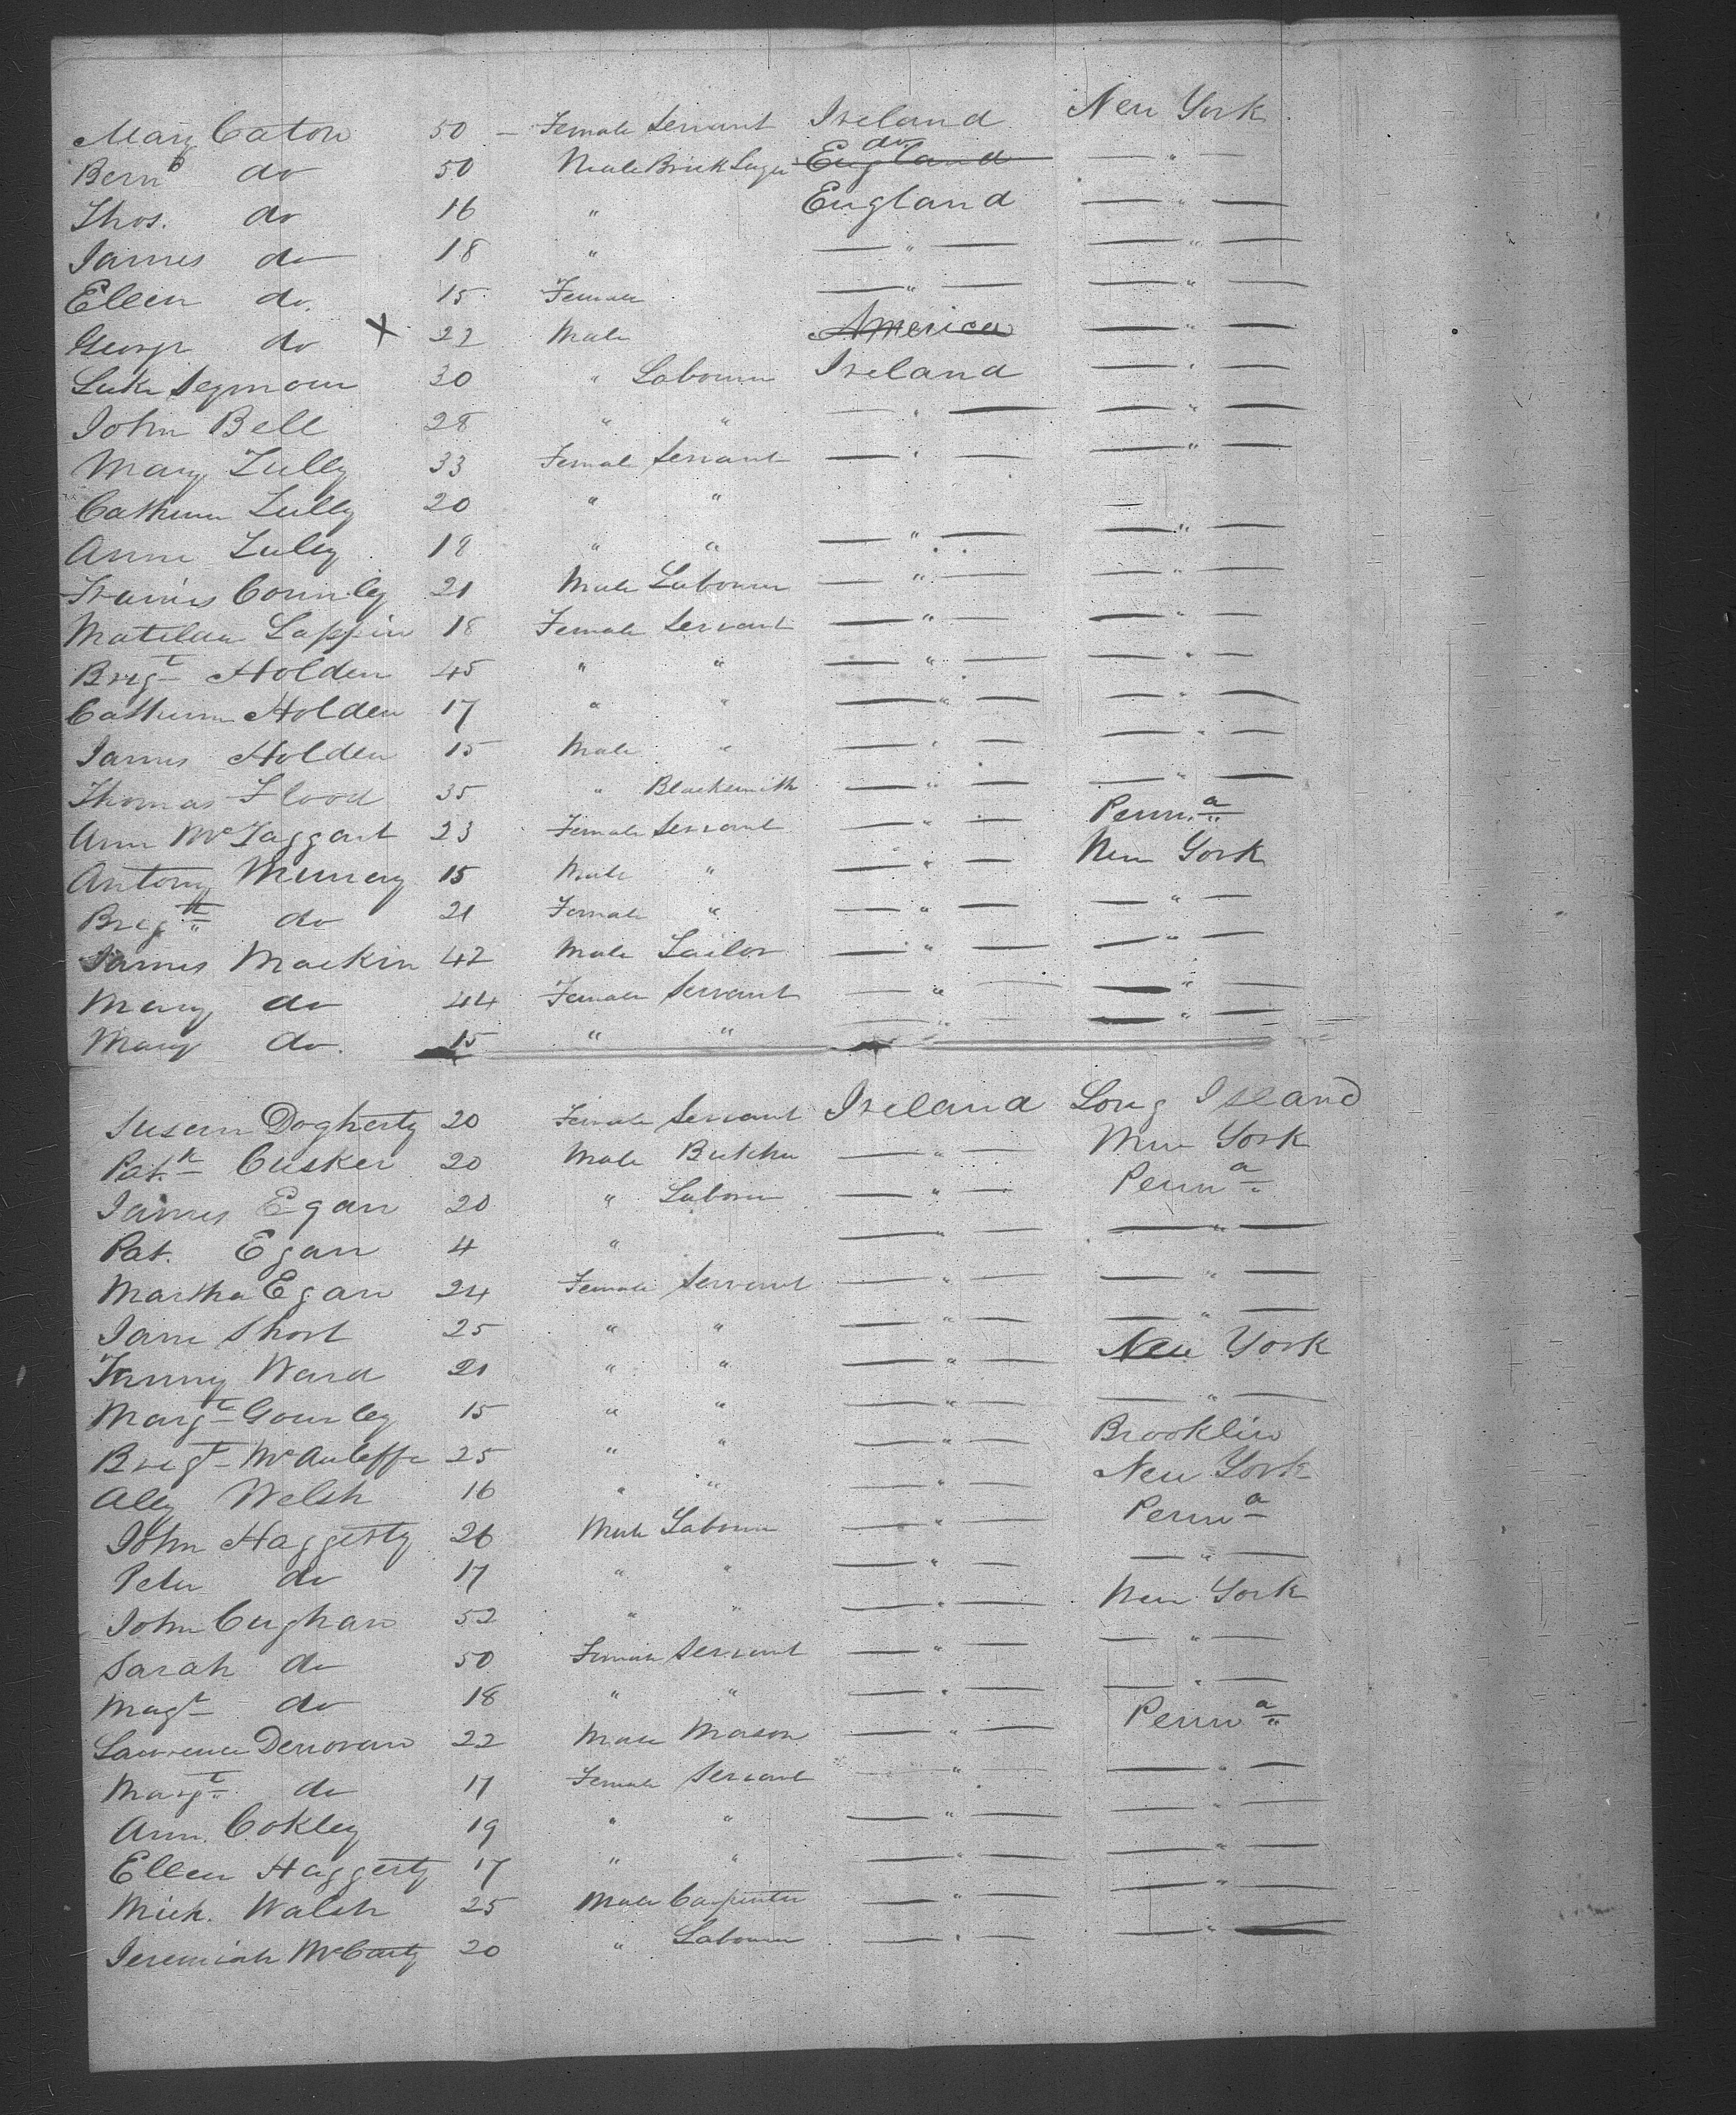 Mary Caton 50 - Female Servant Ireland New York
Bernd do 50 Male Brick Layer England do — " —
Thos. do 16 " England — " —
James do 18 " — " — — " —
Ellen do. 15 Female — " — — " —
George do X 22 Male America — " —
Luke Seymour 30 " Labourer Ireland — " —
John Bell 28 " " — " — — " —
Mary Tully 33 Female Servant — " — — " —
Catherine Tully 20 " " —
Anne Tully 18 " " — " — — " —
Francis Connley 21 Male Labourer — " — — " —
Matilda Lappin 18 Female Servant — " — — " —
Brigt Holden 45 " " — " — — " —
Catherine Holden 17 " " — " — — " —
James Holden 15 Male " — " — — " —
Thomas Flood 35 " Blacksmith — " — — " —
Ann McTaggart 23 Female Servant — " — Penna
Antony Murrey 15 Male " — " — New York
Brigtt do 21 Female " — " — — " —
James Mackin 42 Male Tailor — " — — " —
Mary do 44 Female Servant — " — — " —
Mary do. 15 " " — " — — " —
Susan Dogherty 20 Female Servant Ireland Long Island
Patk Cusker 20 Male Butcher — " — New York
James Egan 20 " Labourer — " — Penna
Pat. Egan 4 " — " — — " —
Martha Egan 24 Female Servant — " — — " —
Jane Short 25 " " — " — — " —
Fanny Ward 21 " " — " — New York
Margtt Gourley 15 " " — " — — " —
Brigt McAuleffe 25 " " — " — Brooklin
Aley Welsh 16 " " — " — New York
John Haggerty 26 Male Labourer — " — Penna
Peter do 17 " " — " — — " —
John Cughan 52 " " — " — New York
Sarah do 50 Female Servant — " — — " —
Magt do 18 " " — " — — " —
Lawrence Denovan 22 Male Mason — " — Penna
Margt do 17 Female Servant — " — — " —
Ann. Cokley 19 " " — " — — " —
Ellen Haggerty 17 " " — " — — " —
Mich. Walsh 25 Male Carpenter — " — — " —
Jeremiah McCarty 20 " Labourer — " — — " —